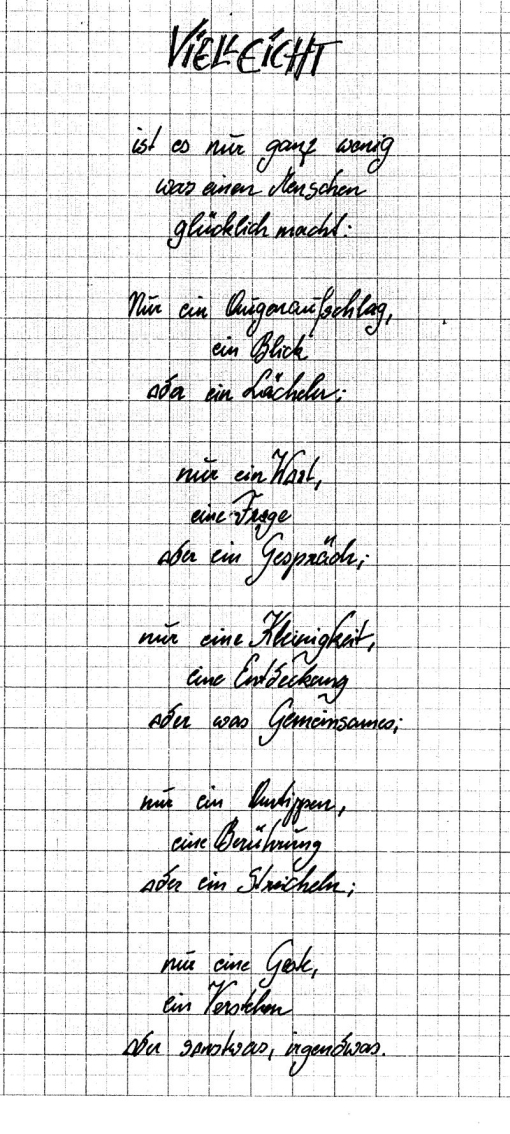 VIELLEICHT
ist es nur ganz wenig
was einen Menschen
glücklich macht:
Nur ein Augenaufschlag,
ein Blick
oder ein Lächeln;
nur ein Wort,
eine Frage
oder ein Gespräch;
nur eine Kleinigkeit,
eine Entdeckung
oder was Gemeinsames;
nur ein Antippen,
eine Berührung
oder ein Streicheln;
nur eine Geste,
ein Verstehen
oder sonstwas, irgendwas.